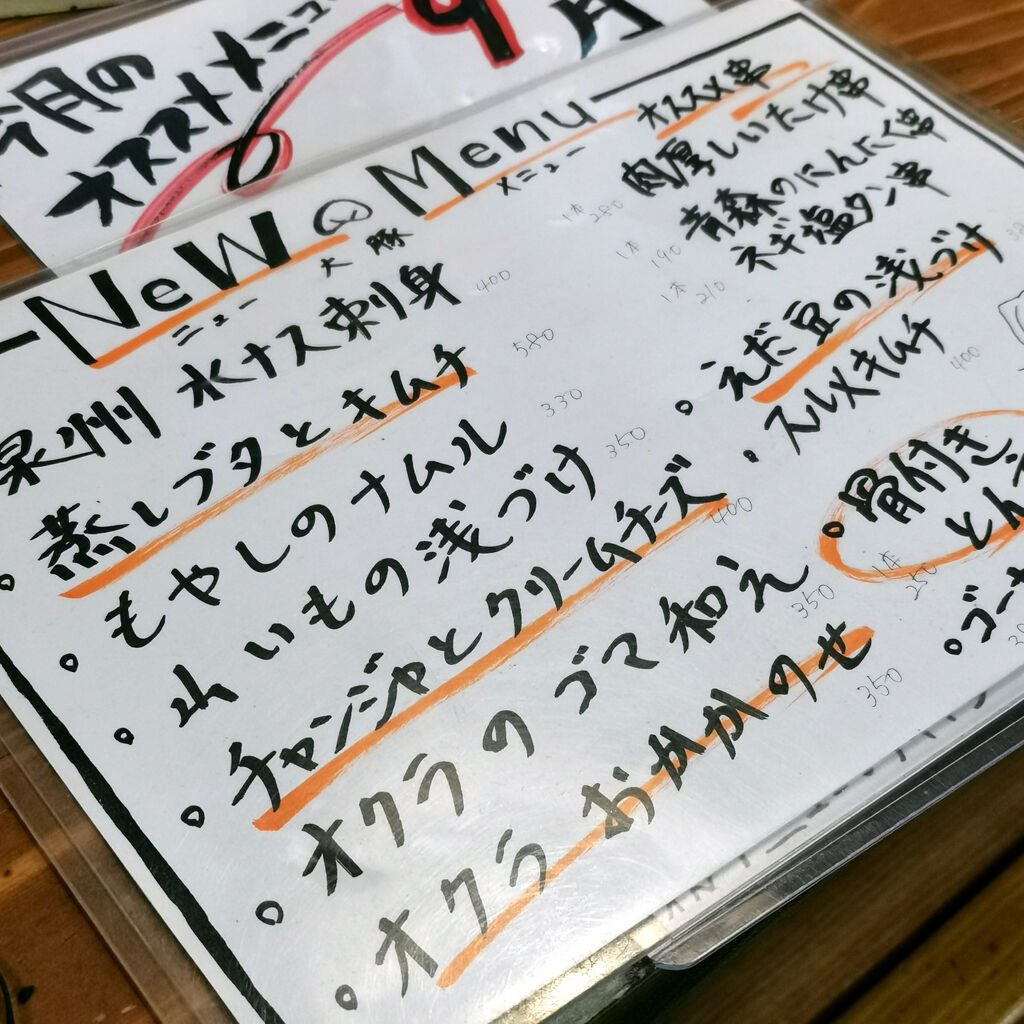 今月の
オススメメニュー
9月
NeW Menu
ニュー メニュー
大豚
泉州 水ナス刺身 400
蒸しブタとキムチ 580
もやしのナムル 330
山いもの浅づけ 350
チャンジャとクリームチーズ 400
オクラのゴマ和え 350
オクラおかかのせ 350
オススメ串
肉厚しいたけ串 1本 280
青森のにんにく串 1本 190
ネギ塩タン串 1本 210
えだ豆の浅づけ
スルメキムチ 400
骨付き
とん
1本 250
ゴーヤ